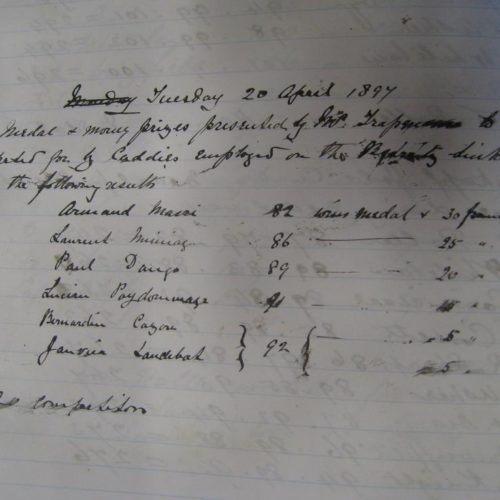 Monday Tuesday 20 April 1897
Medal & money prizes presented by Mr.
for by Caddies employed on the
the following results
Armand 82 wins medal & 30 fran
Laurent 86 25 "
Paul Dango 89 20 "
Lucien Poydommage 91 "
Bernardin 5 "
Janvier Landebat 92 5 "
competitors